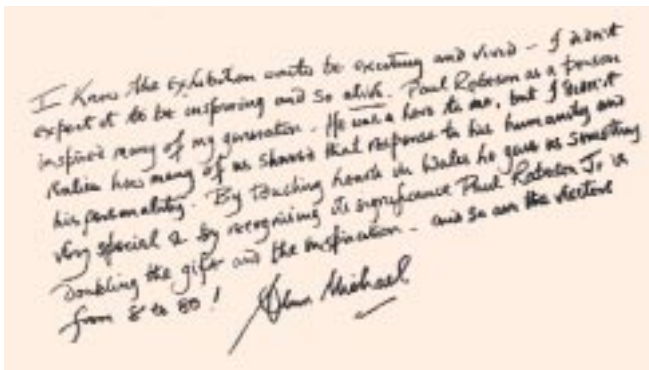 I knew the exhibition would be exciting and vivid - I didn't
expect it to be inspiring and so alive. Paul Robeson as a person
inspired many of my generation. He was a hero to me, but I didn't
realise how many of us shared that response to his humanity and
his personality. By touching hearts in Wales he gave us something
very special & by recognising its significance Paul Robeson Jr is
doubling the gift and the inspiration - and so are the visitors
from 8 to 80!
Alun Michael